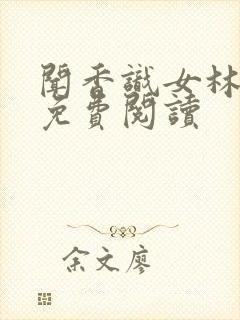 聞香識女林
免費閱讀
余文廖